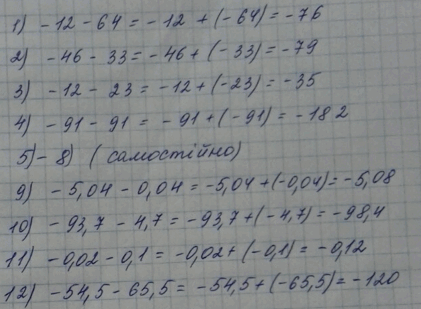 1) -12 - 64 = -12 + (-64) = -76
2) -46 - 33 = -46 + (-33) = -79
3) -12 - 23 = -12 + (-23) = -35
4) -91 - 91 = -91 + (-91) = -182
5) - 8) (самостійно)
9) -5,04 - 0,04 = -5,04 + (-0,04) = -5,08
10) -93,7 - 4,7 = -93,7 + (-4,7) = -98,4
11) -0,02 - 0,1 = -0,02 + (-0,1) = -0,12
12) -54,5 - 65,5 = -54,5 + (-65,5) = -120